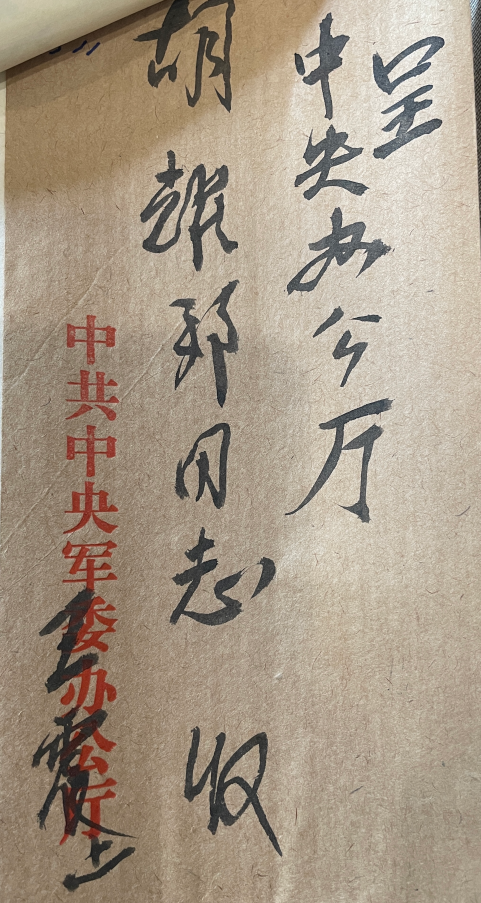 呈
中央办公厅
胡耀邦同志 收
中共中央军委办公厅
王震上